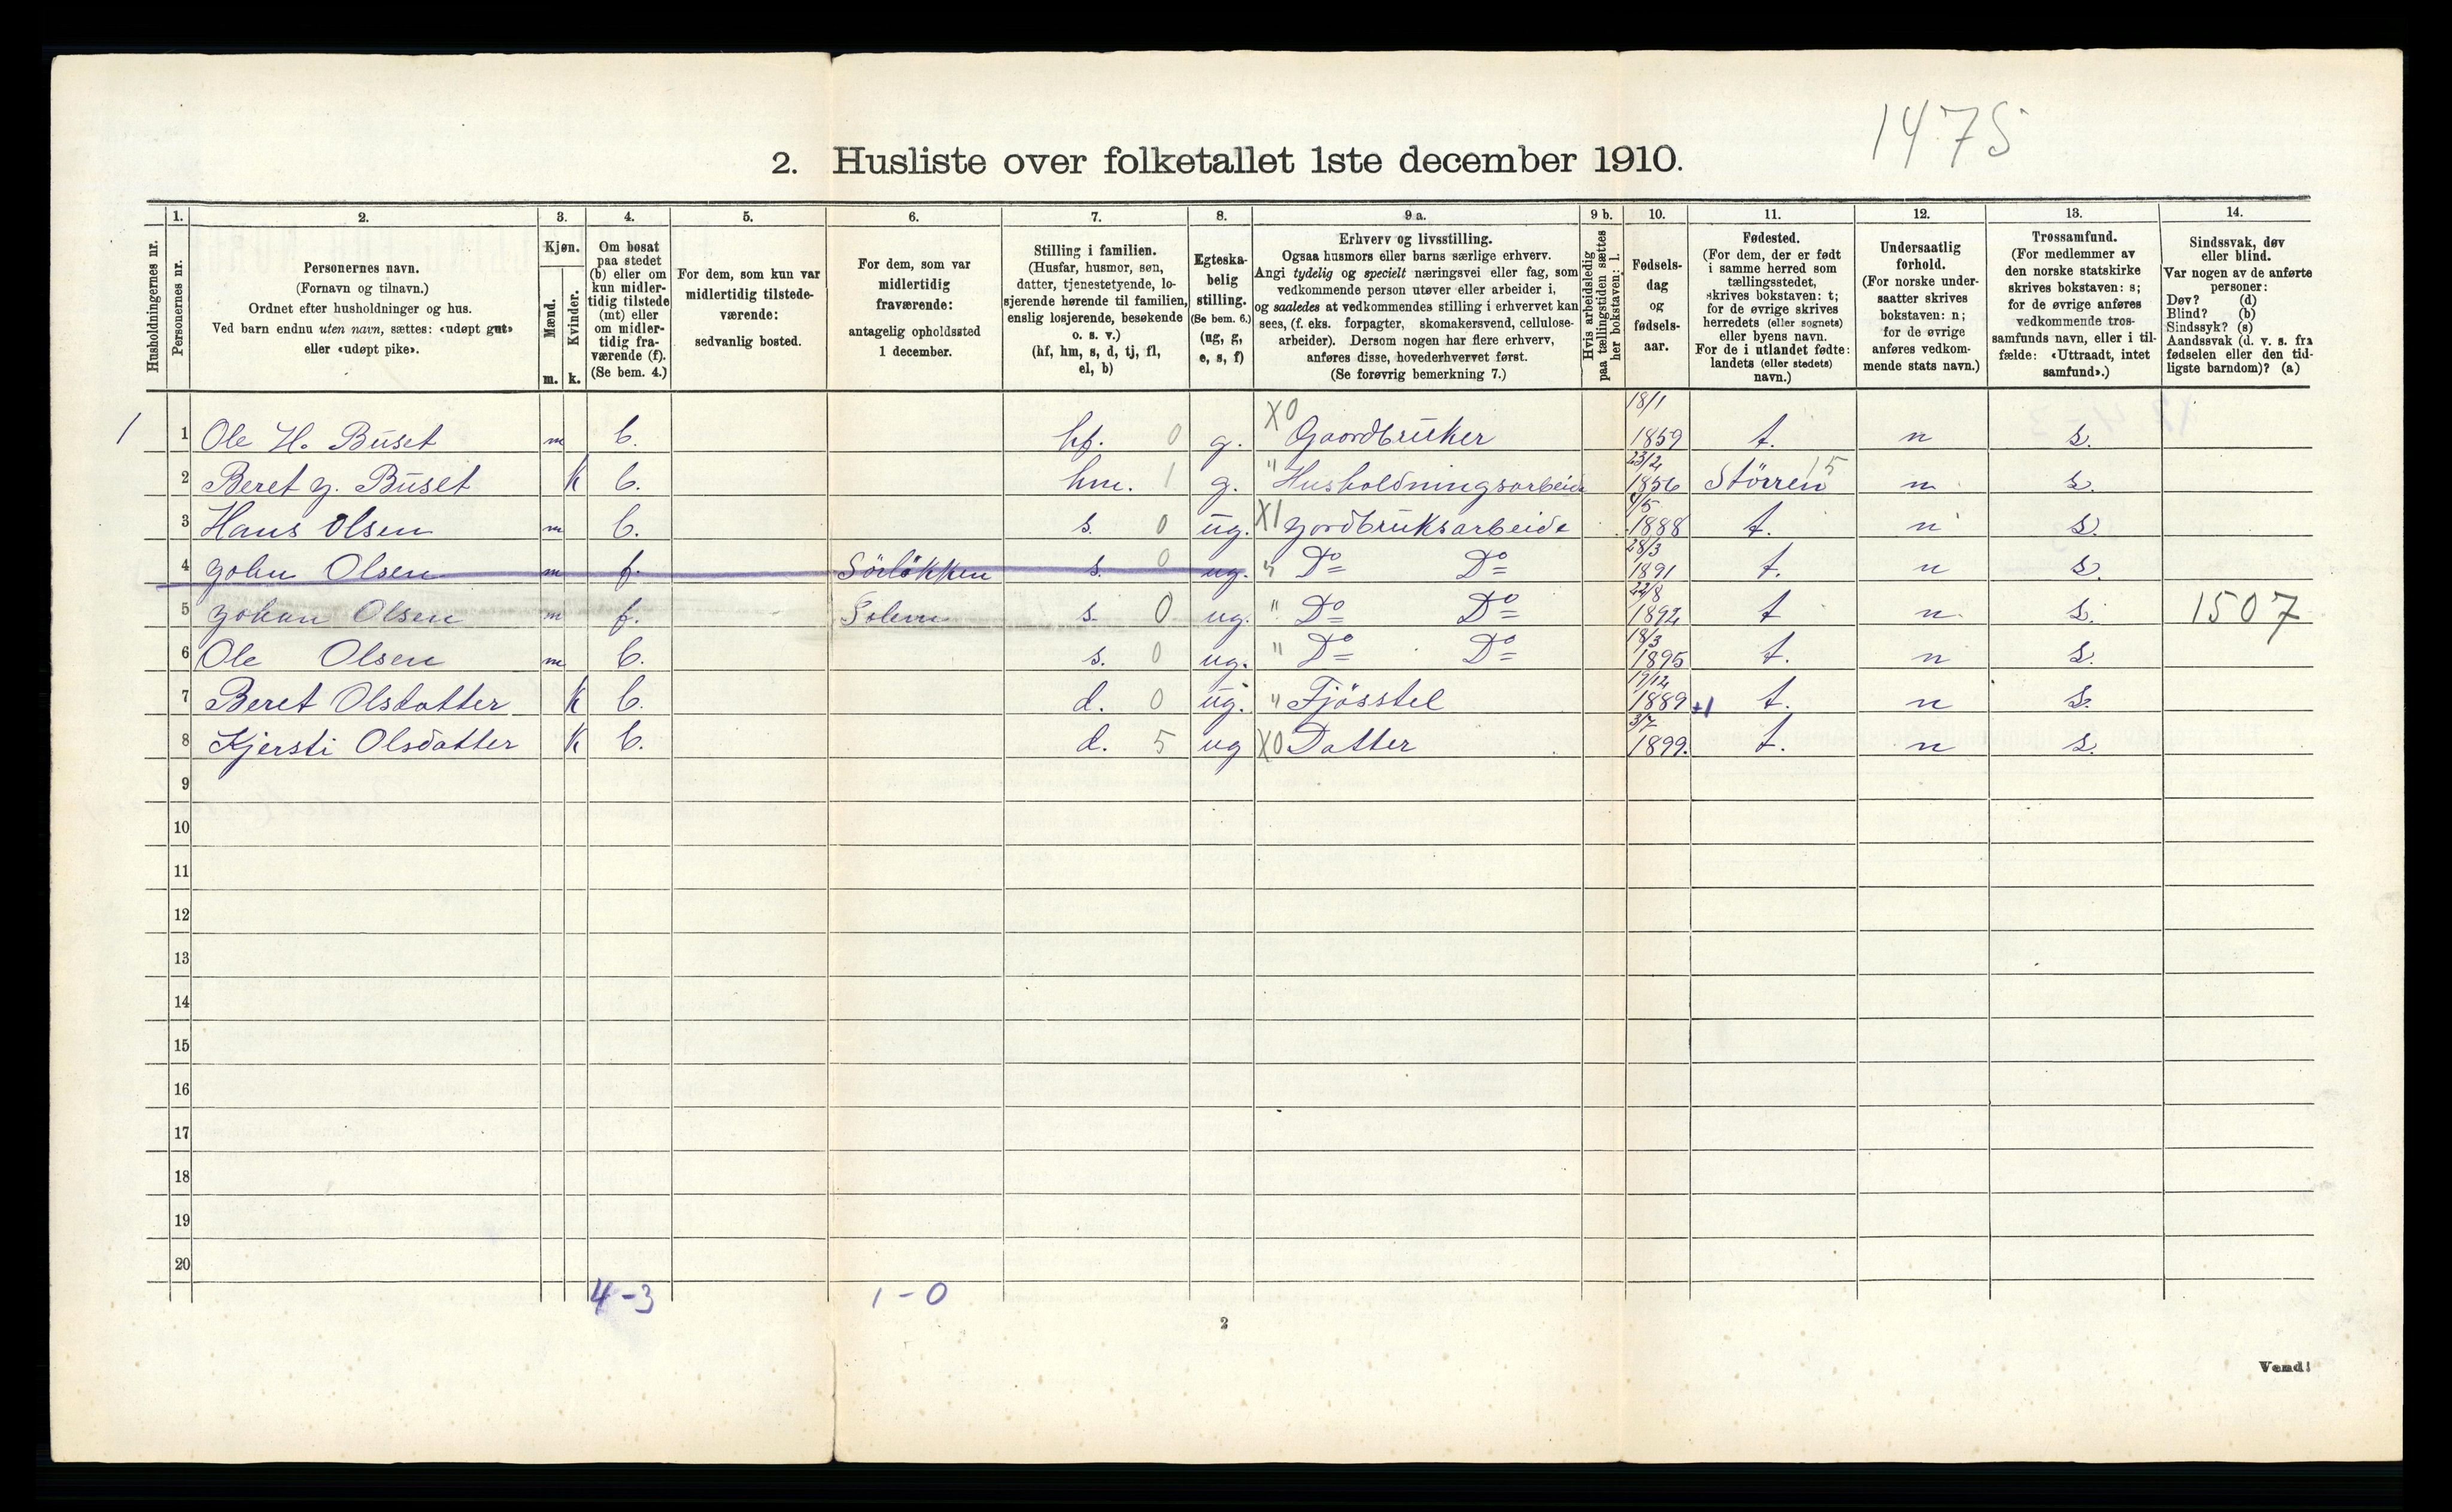 1475
2. Husliste over folketallet 1ste december 1910.
Husholdningernes nr.
1. Personernes nr.
2. Personernes navn. (Fornavn og tilnavn.) Ordnet efter husholdninger og hus. Ved barn endnu uten navn, sættes: «udøpt gut» eller «udøpt pike».
3. Kjøn. Mænd. m. Kvinder. k.
4. Om bosat paa stedet (b) eller om kun midlertidig tilstede (mt) eller om midlertidig fraværende (f). (Se bem. 4.)
5. For dem, som kun var midlertidig tilstedeværende: sedvanlig bosted.
6. For dem, som var midlertidig fraværende: antagelig opholdssted 1 december.
7. Stilling i familien. (Husfar, husmor, søn, datter, tjenestetyende, losjerende hørende til familien, enslig losjerende, besøkende o. s. v.) (hf, hm, s, d, tj, fl, el, b)
8. Egteskabelig stilling. (Se bem. 6.) (ug, g, e, s, f)
9 a. Erhverv og livsstilling. Ogsaa husmors eller barns særlige erhverv. Angi tydelig og specielt næringsvei eller fag, som vedkommende person utøver eller arbeider i, og saaledes at vedkommendes stilling i erhvervet kan sees, (f. eks. forpagter, skomakersvend, cellulosearbeider). Dersom nogen har flere erhverv, anføres disse, hovederhvervet først. (Se forøvrig bemerkning 7.)
9 b. Hvis arbeidsledig paa tællingstiden sættes her bokstaven: l.
10. Fødselsdag og fødselsaar.
11. Fødested. (For dem, der er født i samme herred som tællingsstedet, skrives bokstaven: t; for de øvrige skrives herredets (eller sognets) eller byens navn. For de i utlandet fødte: landets (eller stedets) navn.)
12. Undersaatlig forhold. (For norske undersaatter skrives bokstaven: n; for de øvrige anføres vedkommende stats navn.)
13. Trossamfund. (For medlemmer av den norske statskirke skrives bokstaven: s; for de øvrige anføres vedkommende trossamfunds navn, eller i tilfælde: «Uttraadt, intet samfund».)
14. Sindssvak, døv eller blind. Var nogen av de anførte personer: Døv? (d) Blind? (b) Sindssyk? (s) Aandssvak (d. v. s. fra fødselen eller den tidligste barndom)? (a)
1 1 Ole H. Buset m b. hf. 0 g. X0 Gaardbruker 18/1 1859 t. n s.
2 Beret J. Buset k b. hm. 1 g. " Husholdningsarbeide 23/2 1856 Støren 15 n s.
3 Hans Olsen m b. s. 0 ug. X1 Jordbruksarbeide 4/5 1888 t. n s.
4 John Olsen m f. Sörløkken s. 0 ug. " Do Do 28/3 1891 t. n s.
5 Johan Olsen m f. Solem s. 0 ug. " Do Do 22/8 1892 t n s. 1507
6 Ole Olsen m b. s. 0 ug. " Do Do 18/3 1895 t. n s.
7 Beret Olsdatter k b. d. 0 ug. " Fjösstel 19/12 1889 +1 t. n s.
8 Kjersti Olsdatter k b. d. 5 ug X0 Datter 3/7 1899. t. n s.
9
10
11
12
13
14
15
16
17
18
19
20
4-3 1-0
2
Vend!